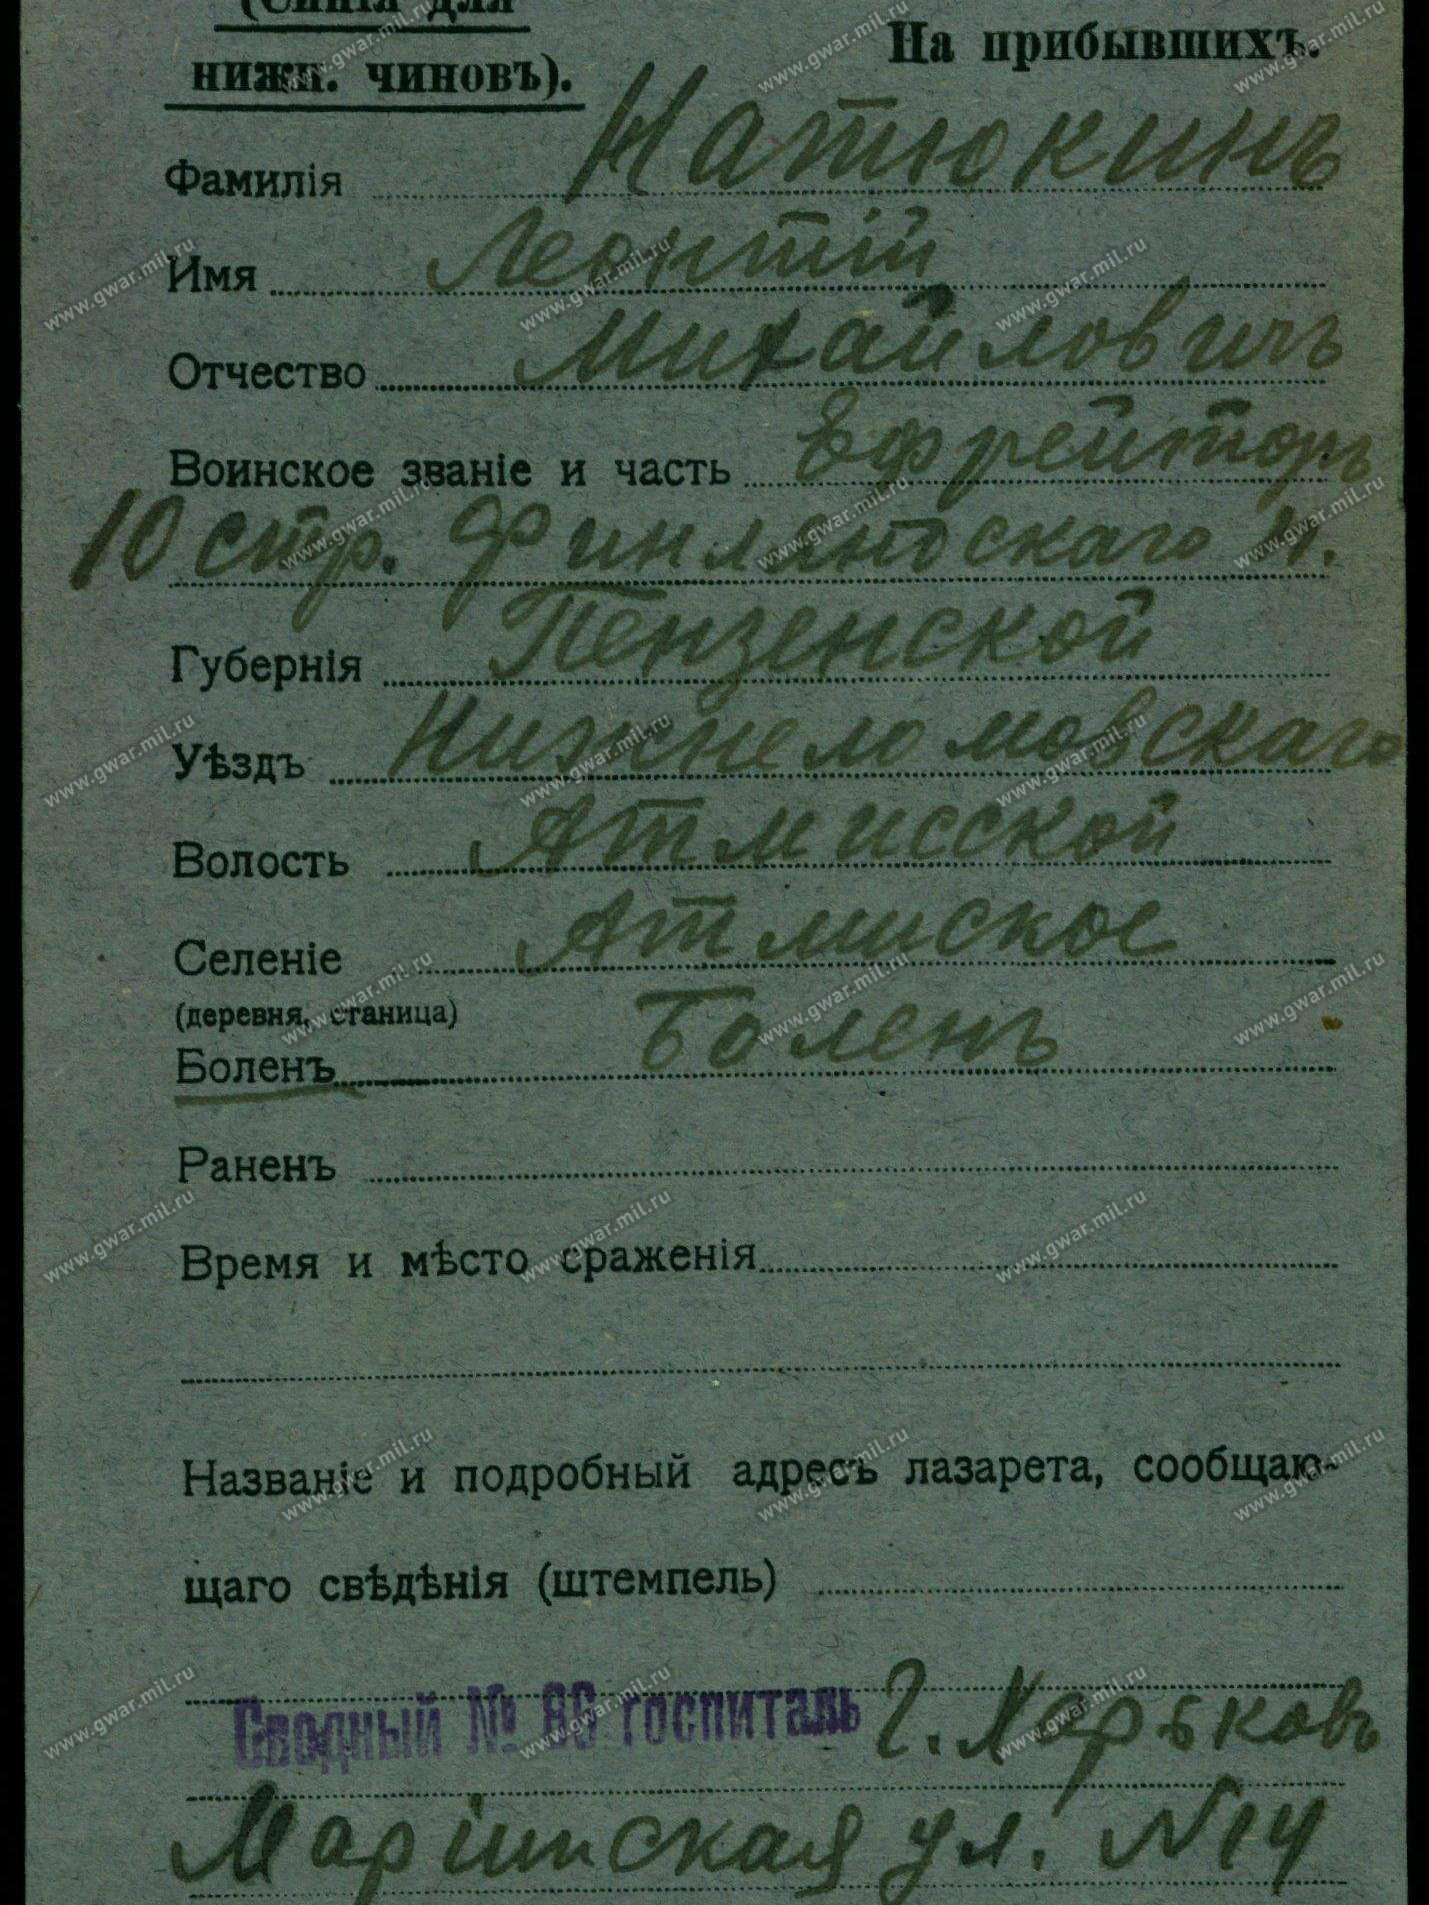 (Синія для
нижн. чиновъ).
На прибывшихъ.
Фамилія Натюкинъ
Имя Леонтій
Отчество Михайловичъ
Воинское званіе и часть Ефрейторъ
10 стр. Финляндскаго п.
Губернія Пензенской
Уѣздъ Нижнеломовскаго
Волость Атмисской
Селеніе Атмиское
(деревня, станица)
Боленъ Боленъ
Раненъ
Время и мѣсто сраженія
Названіе и подробный адресъ лазарета, сообщаю-
щаго свѣдѣнія (штемпель)
Сводный № 86 госпиталь г. Харьковъ
Маріинская ул. №14
www.gwar.mil.ru